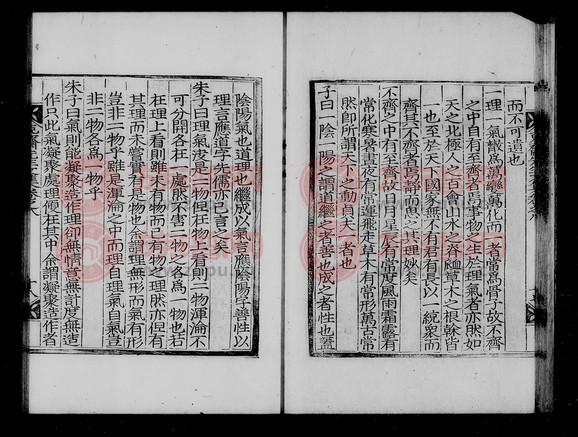 而不可遺也
一理一氣識爲萬變萬化而一者常爲骨子故不齊
之中自有至齊者焉事物之生於理氣者亦然如
天之北極人之古會山水之脊䋲草木之根榦皆
一也至於天下國家無不有君有長以一統衆而
齊其不齊者焉靜而思之其理妙矣
不齊之中有至齊故日月星辰有常度風雨霜露有
常化寒暑晝夜有常運飛走草木有常形萬古常
然即所謂天下之動貞夫一者也
子曰一陰一陽之謂道繼之者善也成之者性也蓋
陰陽氣也道理也繼成以氣言應陰陽字善性以
理言應道字先儒亦已言之矣
朱子曰理氣決是二物但在物上看則二物渾淪不
可分開各在一處然不害二物之各爲一物也若
在理上看則雖未有物而已有物之理然亦但有
其理而未嘗實有是物也余謂理無形而氣有形
豈非二物乎雖是渾淪之中而理自理氣自氣豈
非一物各爲一物乎
朱子曰氣則能凝聚造作理卻無情意無計度無造
作只此氣凝聚處理便在其中余謂凝聚造作者